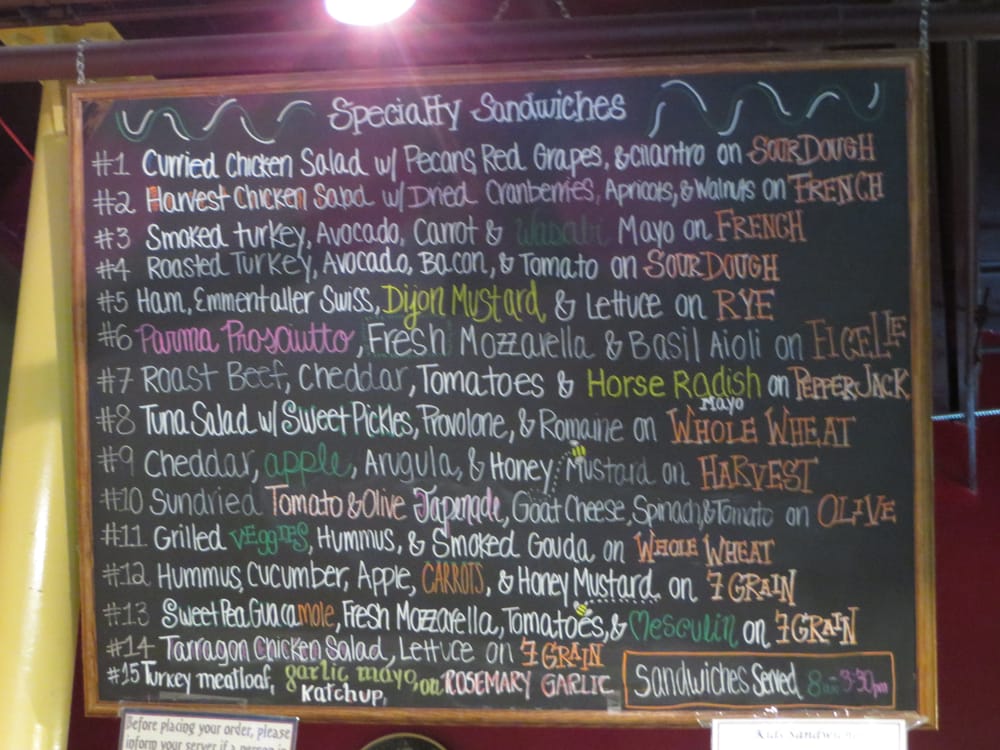 Specialty Sandwiches
#1 Curried Chicken Salad w/ Pecans, Red Grapes, & Cilantro on SOURDOUGH
#2 Harvest Chicken Salad w/ Dried Cranberries, Apricots, & Walnuts on FRENCH
#3 Smoked turkey, Avocado, Carrot & Wasabi Mayo on FRENCH
#4 Roasted Turkey, Avocado, Bacon, & Tomato on SOURDOUGH
#5 Ham, Emmentaller Swiss, Dijon Mustard, & Lettuce on RYE
#6 Parma Prosciutto, Fresh Mozzarella & Basil Aioli on FICELLE
#7 Roast Beef, Cheddar, Tomatoes & Horse Radish on PEPPERJACK
Mayo
#8 Tuna Salad w/ Sweet Pickles, Provolone, & Romaine on WHOLE WHEAT
#9 Cheddar, apple, Arugula, & Honey Mustard on HARVEST
#10 Sundried Tomato & Olive Tapenade, Goat Cheese, Spinach & Tomato on OLIVE
#11 Grilled veggies, Hummus, & Smoked Gouda on WHOLE WHEAT
#12 Hummus, Cucumber, Apple, CARROTS, & Honey Mustard on 7 GRAIN
#13 Sweet Pea Guacamole, Fresh Mozzarella, Tomatoes, & Mesculin on 7 GRAIN
#14 Tarragon Chicken Salad, Lettuce on 7 GRAIN
#15 Turkey meatloaf, garlic mayo, on ROSEMARY GARLIC
Katchup,
Sandwiches Served 8am-3:30pm
Before placing your order, please
inform your server if a person in
Kids Sandwiches